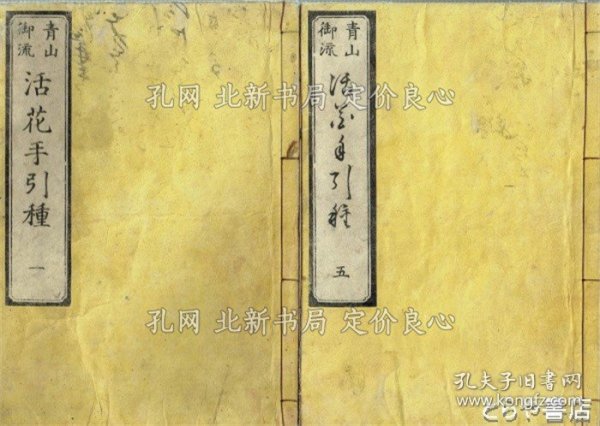 青山
御流
活花手引種
一
青山
御流
活花手引種
五
孔网 北新书局 定价良心
孔网 北新书局 定价良心
孔夫子旧书网
www.kongfz.com
とらや書店